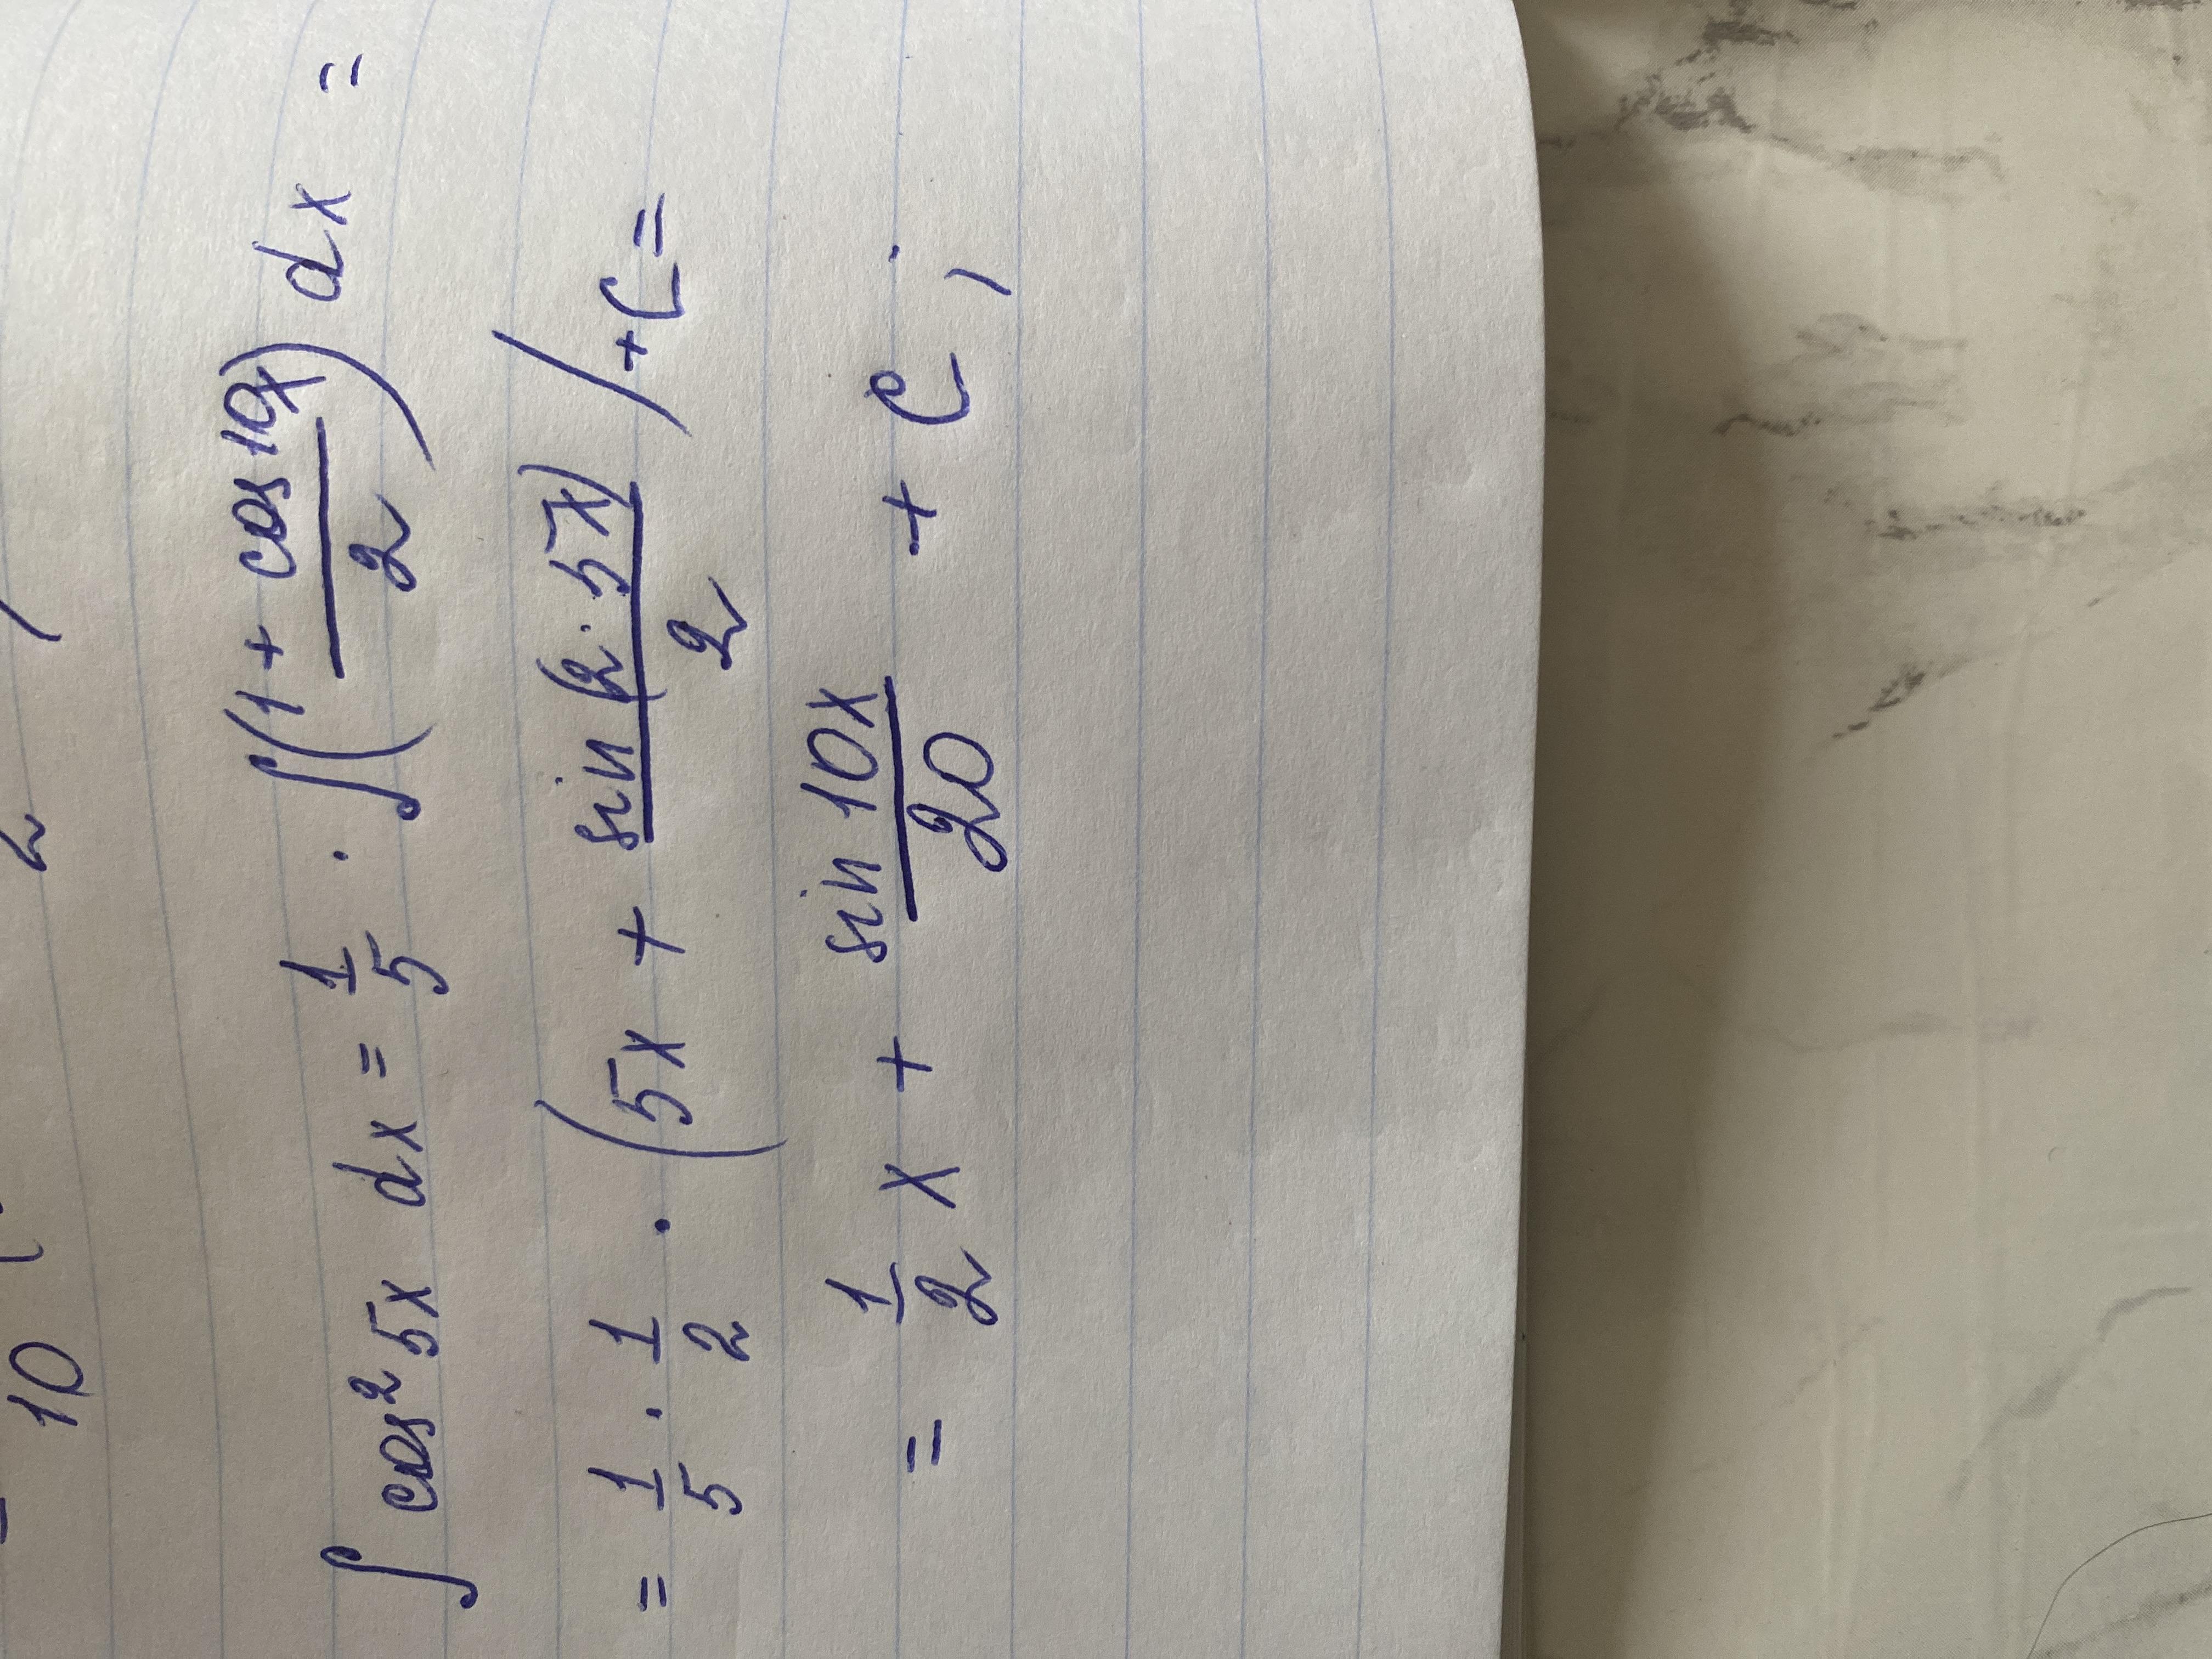 10 2
∫ cos² 5x dx = 1/5 · ∫ ((1 + cos 10x)/2) dx =
= 1/5 · 1/2 · (5x + sin (2 · 5x)/2) + C =
= 1/2 x + sin 10x/20 + C ;